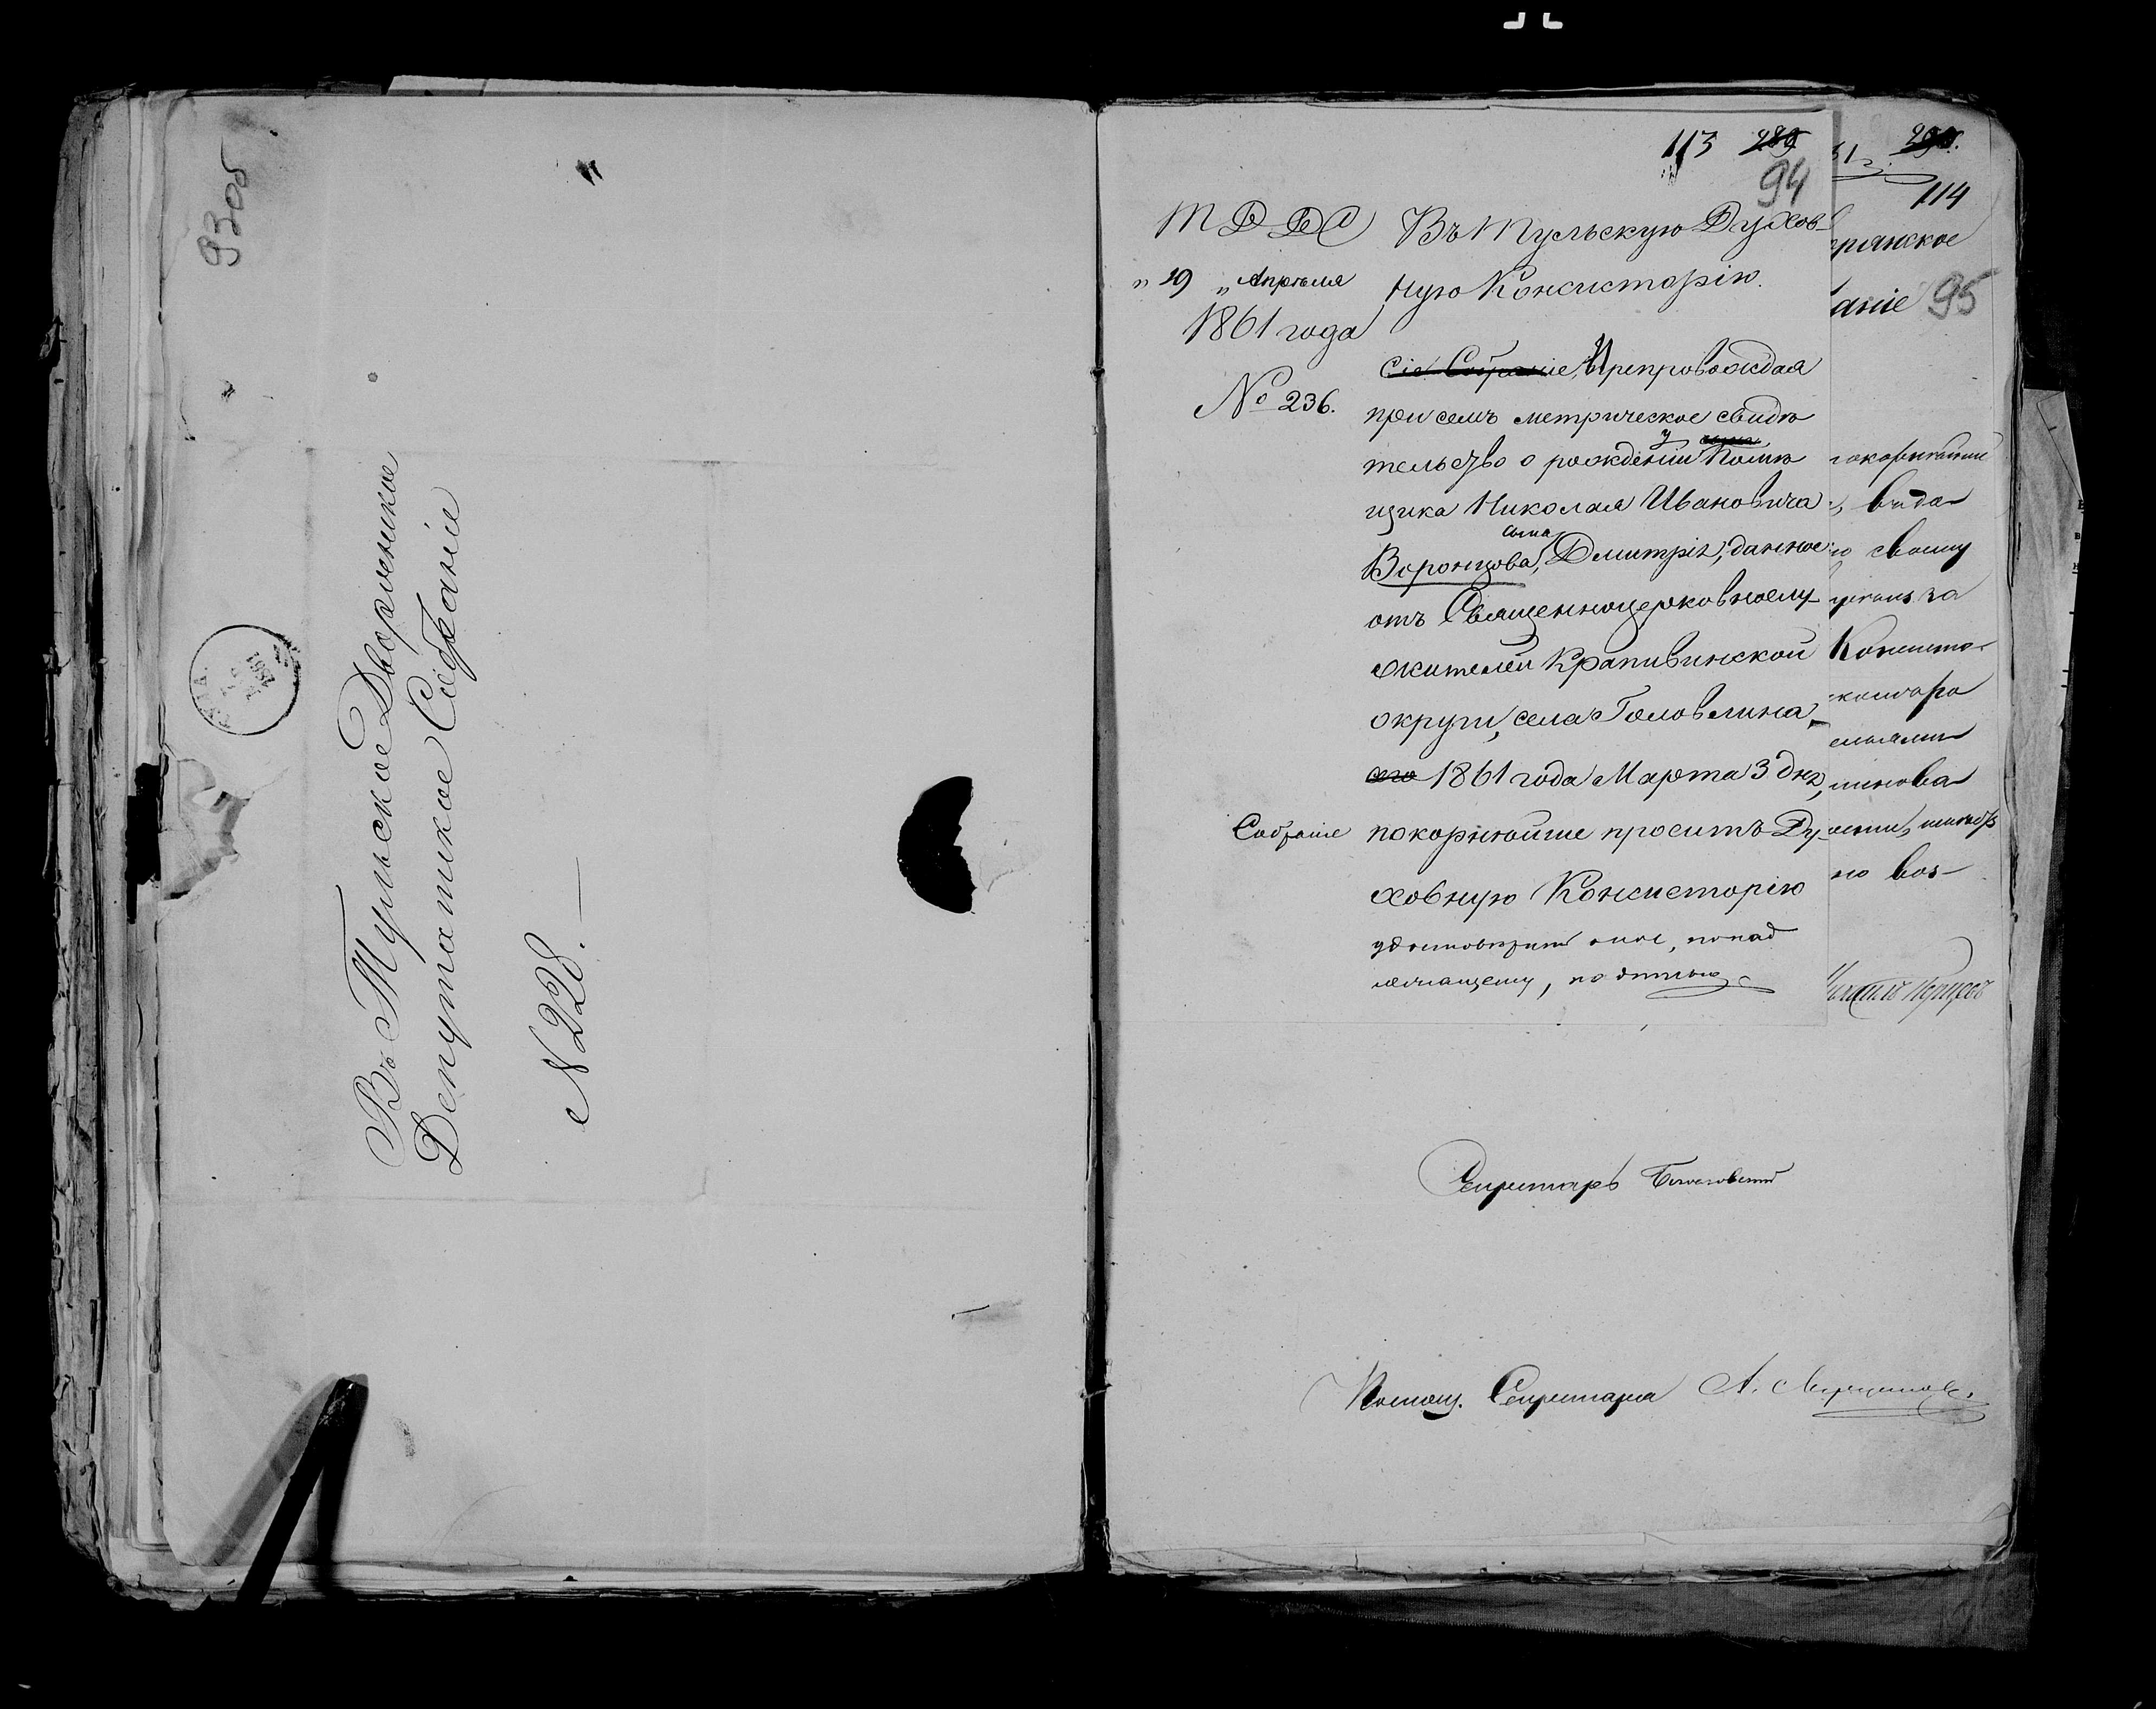 93об
Въ Тульское Дворянское
Депутатское Собраніе
N 228.
113 289
94
Т Д Д С
" 19 " Апрѣля
1861 года
№ 236.
Въ Тульскую Духов-
ную Консисторію.
Сіе Собраніе, Препровождая
при семъ метрическое свидѣ
тельство о рожденіи у Помѣ
щика Николая Ивановича
Воронцова, сына Дмитрія, данное
отъ Священноцерковнослу-
жителей Крапивинской
округи, села Головлина,
сего 1861 года Марта 3 дня,
Собраніе покорнѣйше проситъ Ду-
ховную Консисторію
удостовѣрить оное, по над
лежащему, подписью
Секретарь
Помощ. Секретаря А.
290.
114
рянское
аніе 95
покорнѣйше
выда
своему
за
Консисто-
но воз-